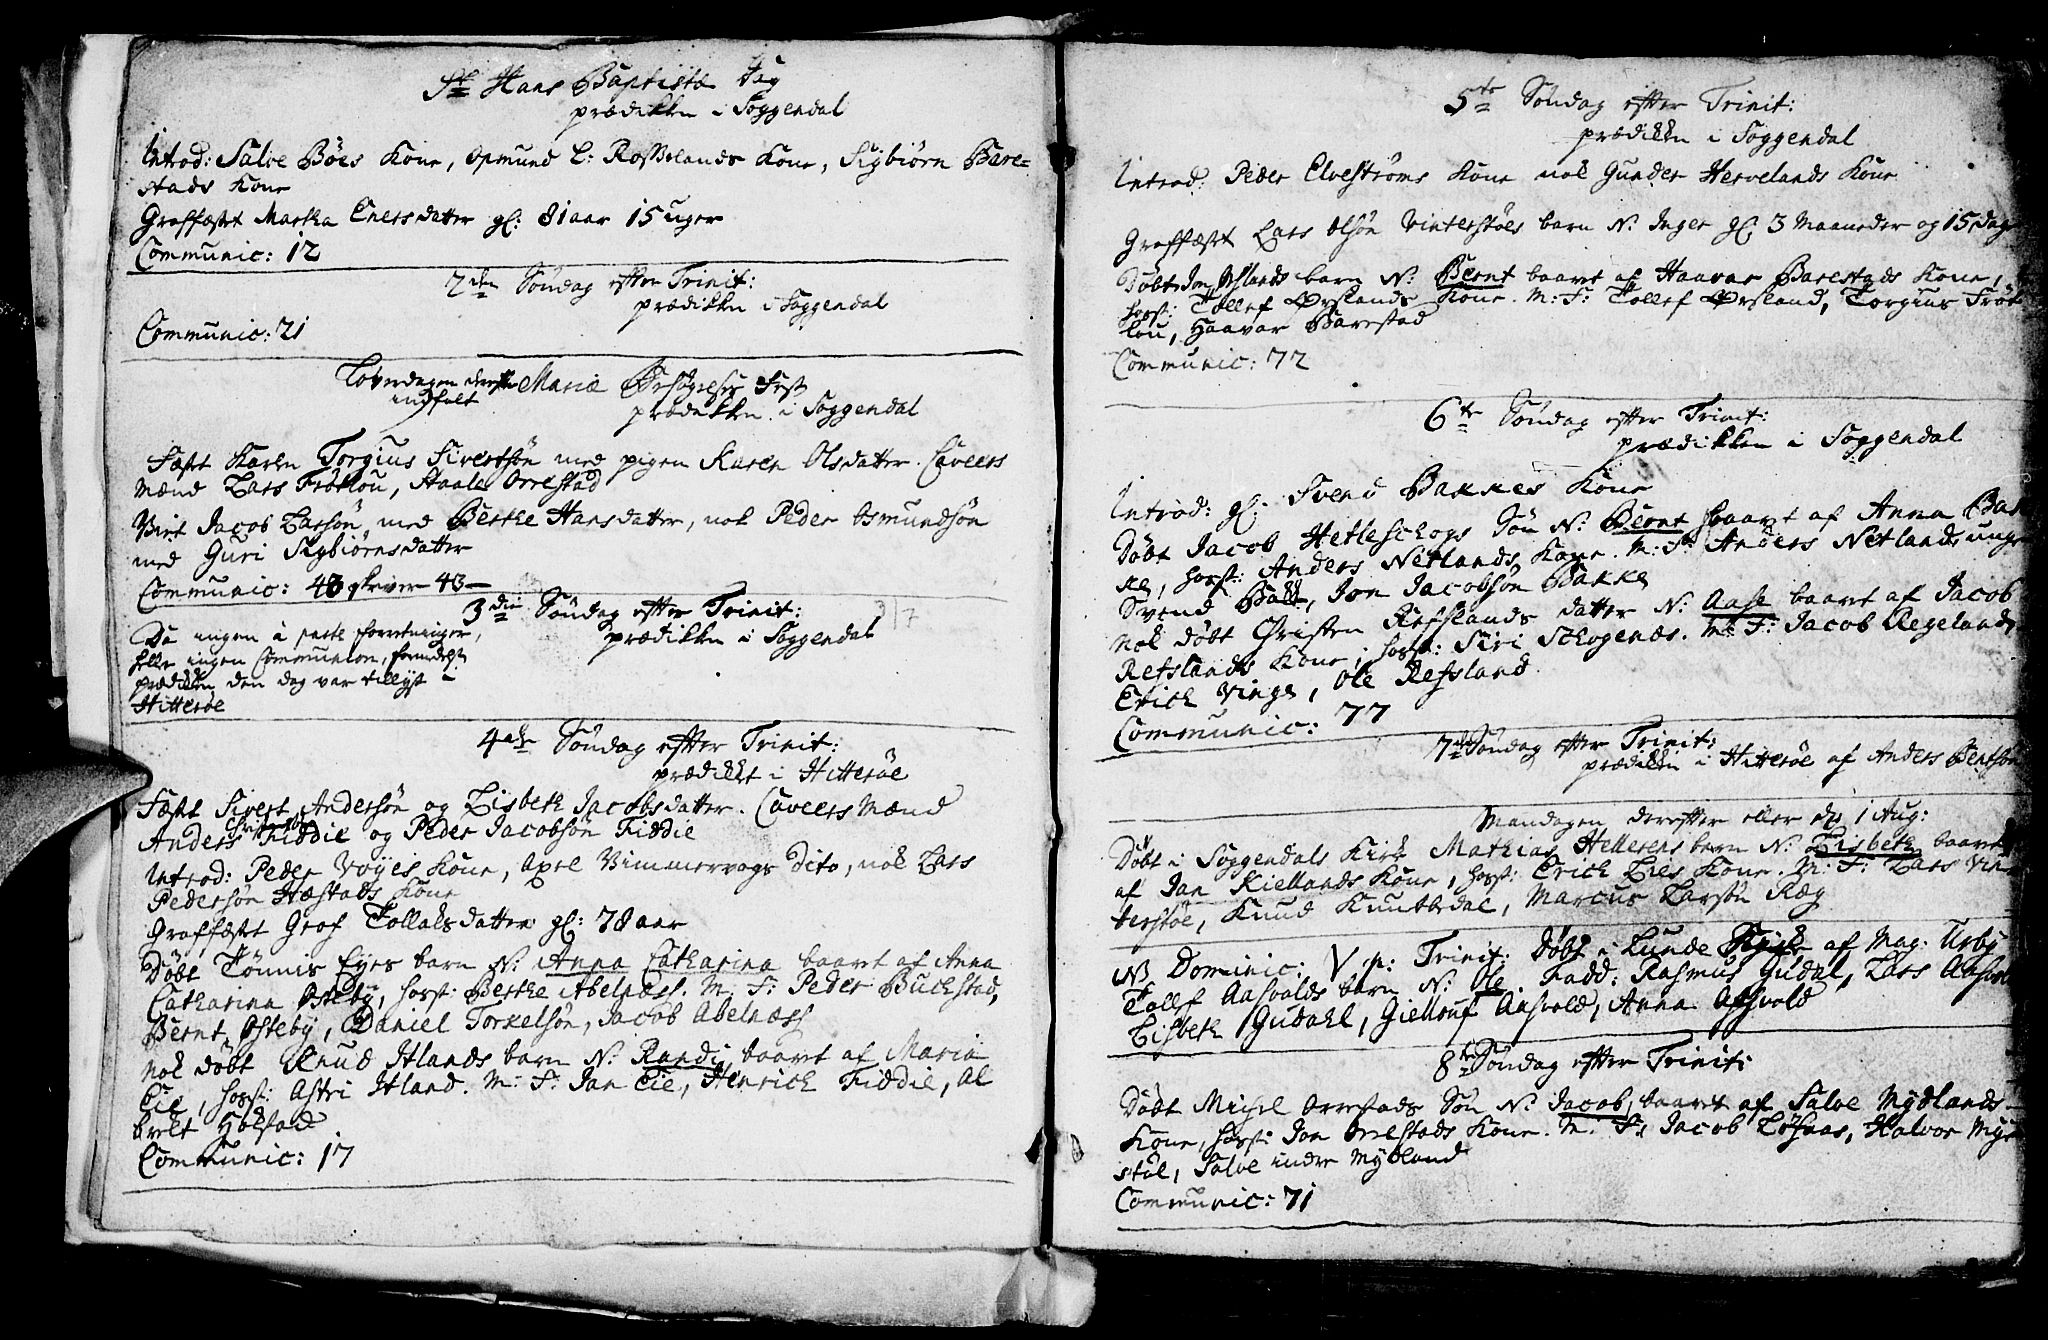 St Hans Baptistæ Dag
prædikken i Soggendal
Introd: Salve Böes Kone, Osmund L: Rosselands Kone, Sigbiörn Bare=
stads Kone
Graffæst Martha Enersdatter gl: 81 aar 15 uger
Communic: 12
2den Söndag efter Trinit:
prædikken i Soggendal
Communic: 21
Löverdagen derefter Mariæ Besögelses Fest
indfalt
prædikken i Soggendal
Fæst Karen Torgius Sivertsön med pigen Karen Olsdatter. Caveers
Mænd Lars Fröitlou, Staale Orrestad
Viet Jacob Larsön, med Berthe Hansdatter, nok Peder Osmundsön
med Guri Sigbiörnsdatter
Communic: 43 skriver 43
3die Söndag efter Trinit: 3/7
prædikken i Soggendal
Da ingen præste forretninger,
heller ingen Communion, formedelst
prædikken den dag var tillyst i
Hitteröe
4de Söndag efter Trinit:
prædikket i Hitteröe
Fæst Sivert Andersön og Lisbeth Jacobsdatter. Caveers Mænd
Anders Fiddie og Peder Jacobsön Fiddie
Introd: Peder Vöyes Kone, Axel Vimmervogs Dito, nok Lars
Pedersön Hæstads Kone
Graffæst Groe Tollaksdatter gl: 78 aar
Döbt Tönnis Eyes barn N: Anna Catharina baaret af Anna
Catharina Östebÿ, host: Berthe Abelnæss. M. F: Peder Buchstad,
Bernt Östebÿ, Daniel Torkelsön, Jacob Abelnæss
Nok döbt Knud Itlands barn N: Randi baaret af Maria
Eie, host: Astri Itland. M: F: Jan Eie, Henrich Fiddie, Al
bret Hölstad
Communic: 17
5te Söndag efter Trinit:
prædikken i Soggendal
Introd: Peder Elveströms Kone nok Gunder Hervelands Kone
Graffæst Lars Olsön Vinterstöes barn N: Inger gl: 3 Maaneder og 15 dage
Döbt Jon Ørslands barn N: Bernt baaret af Haavar Barestads Kone,
host: Tollef Ørslands Kone. M: F: Tollef Ørsland, Torgius Fröit
lou, Haavar Barestad
Communic: 72
6te Söndag efter Trinit:
prædikken i Soggendal
Introd: gl. Svend Bakkes Kone
Döbt Jacob Hetleschogs Sön N: Bernt baaret af Anna Bak
ke, host: Anders Netlands Kone. M: F: Anders Netland, unge
Svend Bakke, Jon Jacobsön Bakke
Nok döbt Christen Refslands datter N: Aase baaret af Jacob
Refslands Kone, host: Siri Schogenæs. M: F: Jacob Regeland,
Erich Vinge, Ole Refsland
Communic: 77
7de Söndag efter Trinit:
prædikken i Hitteröe af Anders Bentsön
Mandagen derefter eller d: 1 Aug:
Döbt i Soggendals Kirke Mathias Hellerens barn N: Lisbeth baaret
af Jan Kiellands Kone, host: Erich Lies Kone. M: F: Lars Vin
terstöe, Knud Knutbedal, Marcus Larsön Ræg
NB Dominic: V p: Trinit: Döbt i Lunde Kirke af Mag: Urby
Tollef Aasvolds barn N: Ole Fadd: Rasmus Gudal, Lars Aasvold
Lisbeth Gudahl, Giellouf Aasvold, Anna Aasvold
8de Söndag efter Trinit:
Döbt Michel Orrestads Sön N: Jacob, baaret af Salve Mydlands
Kone, host: Jon Orrestads Kone. M: F: Jacob Löhaas, Halvor Mys
stöl, Salve indre Mydland
Communic: 71